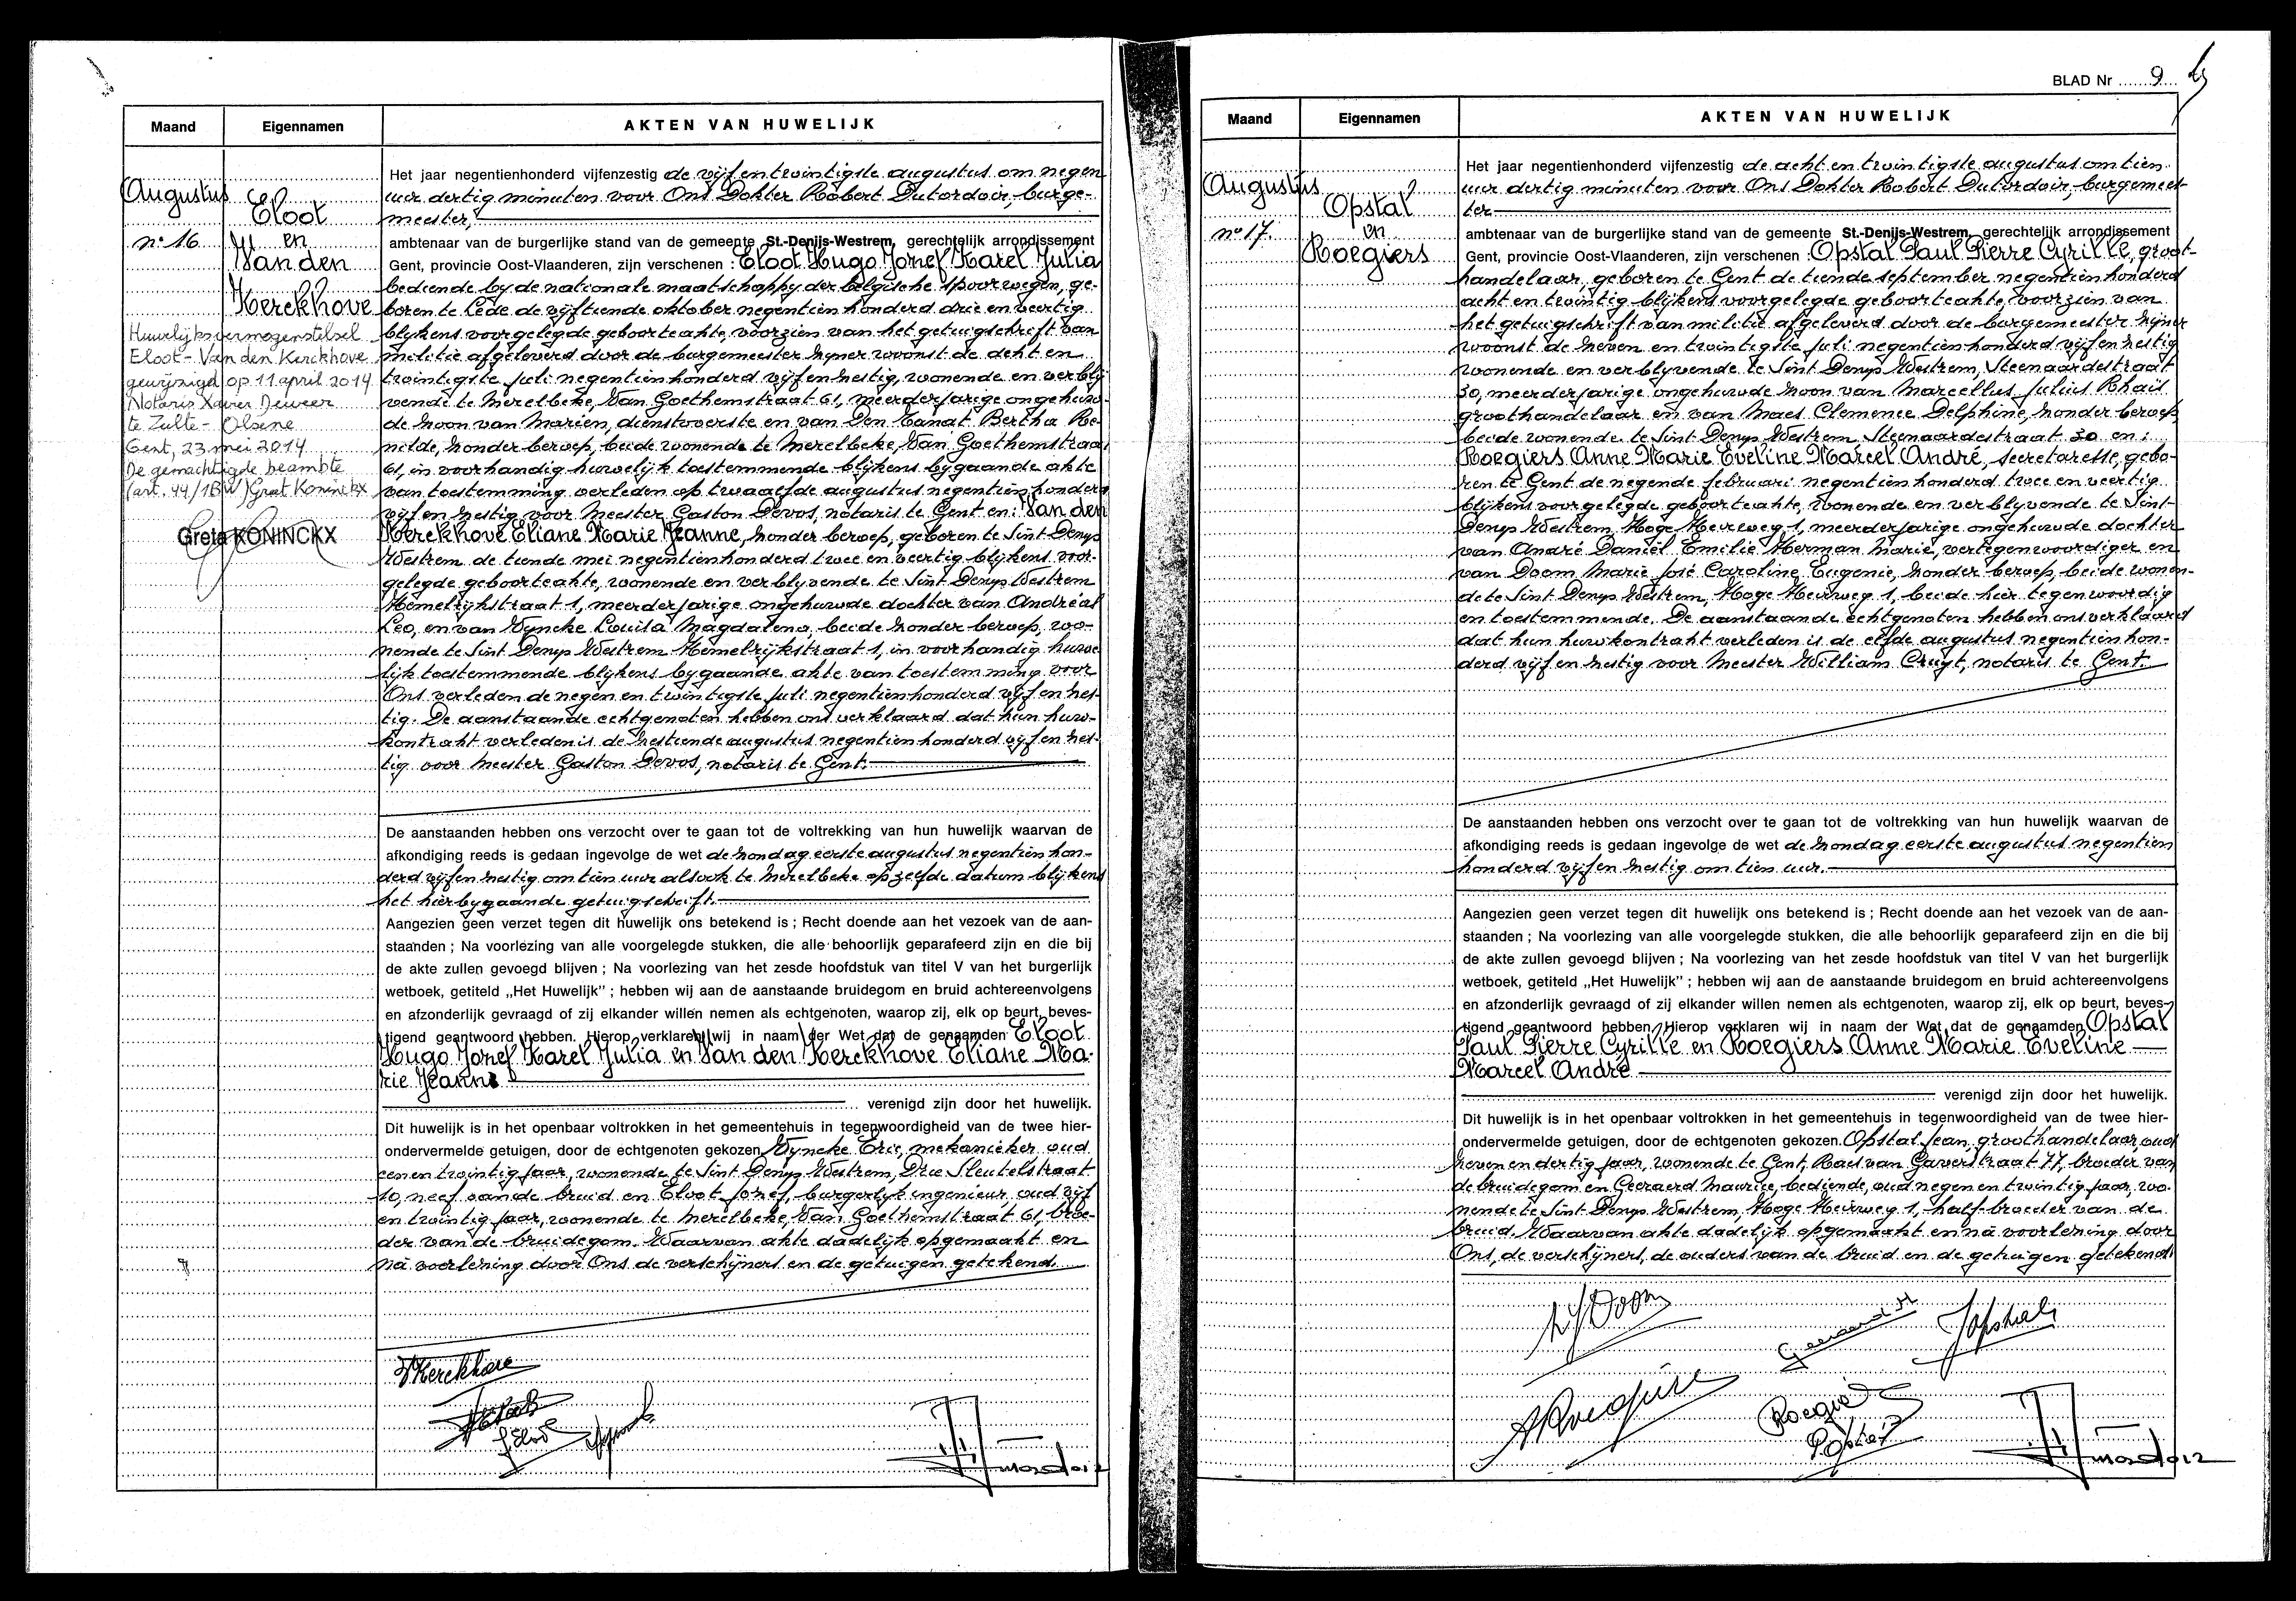 Maand Eigennamen AKTEN VAN HUWELIJK
Augustus
n° 16
Eloot
en
Van den
Kerckhove
Huwelijksvermogenstelsel
Eloot - Van den Kerckhove
gewijzigd op 11 april 2014
Notaris Xavier Deweer
te Zulte - Olsene
Gent, 23 mei 2014
De gemachtigde beambte
(art. 44/1BW) Greet Koninckx
Greta KONINCKX
Het jaar negentienhonderd vijfenzestig de vijf en twintigste augustus om negen
uur dertig minuten voor Ons Dokter Robert Dutordoir, burge-
meester,
ambtenaar van de burgerlijke stand van de gemeente St.-Denijs-Westrem, gerechtelijk arrondissement
Gent, provincie Oost-Vlaanderen, zijn verschenen : Eloot Hugo Jozef Karel Julia
bediende by de nationale maatschappy der belgische spoorwegen, ge-
boren te Lede de vijftiende oktober negentien honderd drie en veertig
blykens voorgelegde geboorteakte, voorzien van het getuigschrift van
militie afgeleverd door de burgemeester zyner woonst de acht en
twintigste juli negentien honderd vijf en zestig, wonende en verbly
vende te Merelbeke, Van Goethemstraat 61, meerderjarige ongehuw-
de zoon van Marien, dienstoverste en van Den Hanat Bertha Re-
milde, zonder beroep, beide wonende te Merelbeke, Van Goethemstraat
61, in voorhandig huwelijk toestemmende blijkens bygaande akte
van toestemming verleden op twaalfde augustus negentien honderd
vijf en zestig voor Meester Gaston Devos, notaris te Gent en: Van den
Kerckhove Eliane Marie Jeanne, zonder beroep, geboren te Sint Denys
Westrem de tiende mei negentienhonderd twee en veertig blijkens voor-
gelegde geboorteakte, wonende en verblyvende te Sint Denys Westrem
Hemelrijkstraat 1, meerderjarige ongehuwde dochter van Andréas
Leo, en van Wyncke Louisa Magdalena, beide zonder beroep, wo-
nende te Sint Denys Westrem Hemelrijkstraat 1, in voorhandig huwe
lijk toestemmende blijkens bygaande akte van toestemming voor
Ons verleden de negen en twintigste juli negentienhonderd vijf en zes-
tig. De aanstaande echtgenoten hebben ons verklaard dat hun huw-
kontrakt verleden is de zestiende augustus negentien honderd vijf en zes-
tig voor Meester Gaston Devos, notaris te Gent.
De aanstaanden hebben ons verzocht over te gaan tot de voltrekking van hun huwelijk waarvan de
afkondiging reeds is gedaan ingevolge de wet de zondag eerste augustus negentien hon-
derd vijf en zestig om tien uur alsook te Merelbeke op zelfde datum blijkens
het hierbygaande getuigschrift.
Aangezien geen verzet tegen dit huwelijk ons betekend is ; Recht doende aan het vezoek van de aan-
staanden ; Na voorlezing van alle voorgelegde stukken, die alle behoorlijk geparafeerd zijn en die bij
de akte zullen gevoegd blijven ; Na voorlezing van het zesde hoofdstuk van titel V van het burgerlijk
wetboek, getiteld „Het Huwelijk" ; hebben wij aan de aanstaande bruidegom en bruid achtereenvolgens
en afzonderlijk gevraagd of zij elkander willen nemen als echtgenoten, waarop zij, elk op beurt, beves-
tigend geantwoord hebben. Hierop verklaren wij in naam der Wet dat de genaamden Eloot
Hugo Jozef Karel Julia en Van den Kerckhove Eliane Ma-
rie Jeanne
verenigd zijn door het huwelijk.
Dit huwelijk is in het openbaar voltrokken in het gemeentehuis in tegenwoordigheid van de twee hier-
ondervermelde getuigen, door de echtgenoten gekozen Wyncke Eric, mekanieker, oud
eenen twintig jaar, wonende te Sint Denys Westrem, Drie Sleutelstraat
10, neef van de bruid en Eloot Jozef, burgerlyk ingenieur, oud vijf
en twintig jaar, wonende te Merelbeke, Van Goethemstraat 61, broe-
der van de bruidegom. Waarvan akte dadelijk opgemaakt en
na voorlezing door Ons de verschijners en de getuigen getekend.
VKerckhove
BLAD Nr 9
Maand Eigennamen AKTEN VAN HUWELIJK
Augustus
n° 17.
Opstal
en
Roegiers
Het jaar negentienhonderd vijfenzestig de acht en twintigste augustus om tien
uur dertig minuten voor Ons Dokter Robert Dutordoir, burgemees-
ter
ambtenaar van de burgerlijke stand van de gemeente St.-Denijs-Westrem, gerechtelijk arrondissement
Gent, provincie Oost-Vlaanderen, zijn verschenen : Opstal Paul Pierre Cyrille, groot-
handelaar, geboren te Gent de tiende september negentienhonderd
acht en twintig blijkens voorgelegde geboorteakte, voorzien van
het getuigschrift van militie afgeleverd door de burgemeester zijner
woonst de zeven en twintigste juli negentien honderd vijf en zestig
wonende en verblyvende te Sint Denys Westrem, Steenaardestraat
30, meerderjarige ongehuwde zoon van Marcellus Julius Rhail
groothandelaar en van Maes Clemence Delphine, zonder beroep,
beide wonende te Sint Denys Westrem Steenaardestraat 30 en:
Roegiers Anne Marie Eveline Marcel André, secretaresse, gebo-
ren te Gent de negende februari negentien honderd twee en veertig
blijkens voorgelegde geboorteakte, wonende en verblyvende te Sint
Denys Westrem, Hoge Heirweg 1, meerderjarige ongehuwde dochter
van André Daniël Emilie Herman Marie, vertegenwoordiger en
van Doom Marie José Caroline Eugenie, zonder beroep, beide wonen-
de te Sint Denys Westrem, Hoge Heirweg 1, beide hier tegenwoordig
en toestemmende. De aanstaande echtgenoten hebben ons verklaard
dat hun huwkontrakt verleden is de elfde augustus negentien hon-
derd vijf en zestig voor Meester William Cruyt, notaris te Gent.
De aanstaanden hebben ons verzocht over te gaan tot de voltrekking van hun huwelijk waarvan de
afkondiging reeds is gedaan ingevolge de wet de zondag eerste augustus negentien
honderd vijf en zestig om tien uur.
Aangezien geen verzet tegen dit huwelijk ons betekend is ; Recht doende aan het vezoek van de aan-
staanden ; Na voorlezing van alle voorgelegde stukken, die alle behoorlijk geparafeerd zijn en die bij
de akte zullen gevoegd blijven ; Na voorlezing van het zesde hoofdstuk van titel V van het burgerlijk
wetboek, getiteld „Het Huwelijk" ; hebben wij aan de aanstaande bruidegom en bruid achtereenvolgens
en afzonderlijk gevraagd of zij elkander willen nemen als echtgenoten, waarop zij, elk op beurt, beves-
tigend geantwoord hebben. Hierop verklaren wij in naam der Wet dat de genaamden Opstal
Paul Pierre Cyrille en Roegiers Anne Marie Eveline
Marcel André
verenigd zijn door het huwelijk.
Dit huwelijk is in het openbaar voltrokken in het gemeentehuis in tegenwoordigheid van de twee hier-
ondervermelde getuigen, door de echtgenoten gekozen. Opstal Jean, groothandelaar, oud
zeven en dertig jaar, wonende te Gent, Raes van Gaverstraat 77, broeder van
de bruidegom en Geeraerd Maurice, bediende, oud negen en twintig jaar, wo-
nende te Sint Denys Westrem, Hoge Heirweg 1, half-broeder van de
bruid. Waarvan akte dadelijk opgemaakt en na voorlezing door
Ons, de verschijners, de ouders van de bruid en de getuigen getekend.
MJDoom
Geeraerd M
JOpstal
ARoegiers
Roegiers
POpstal